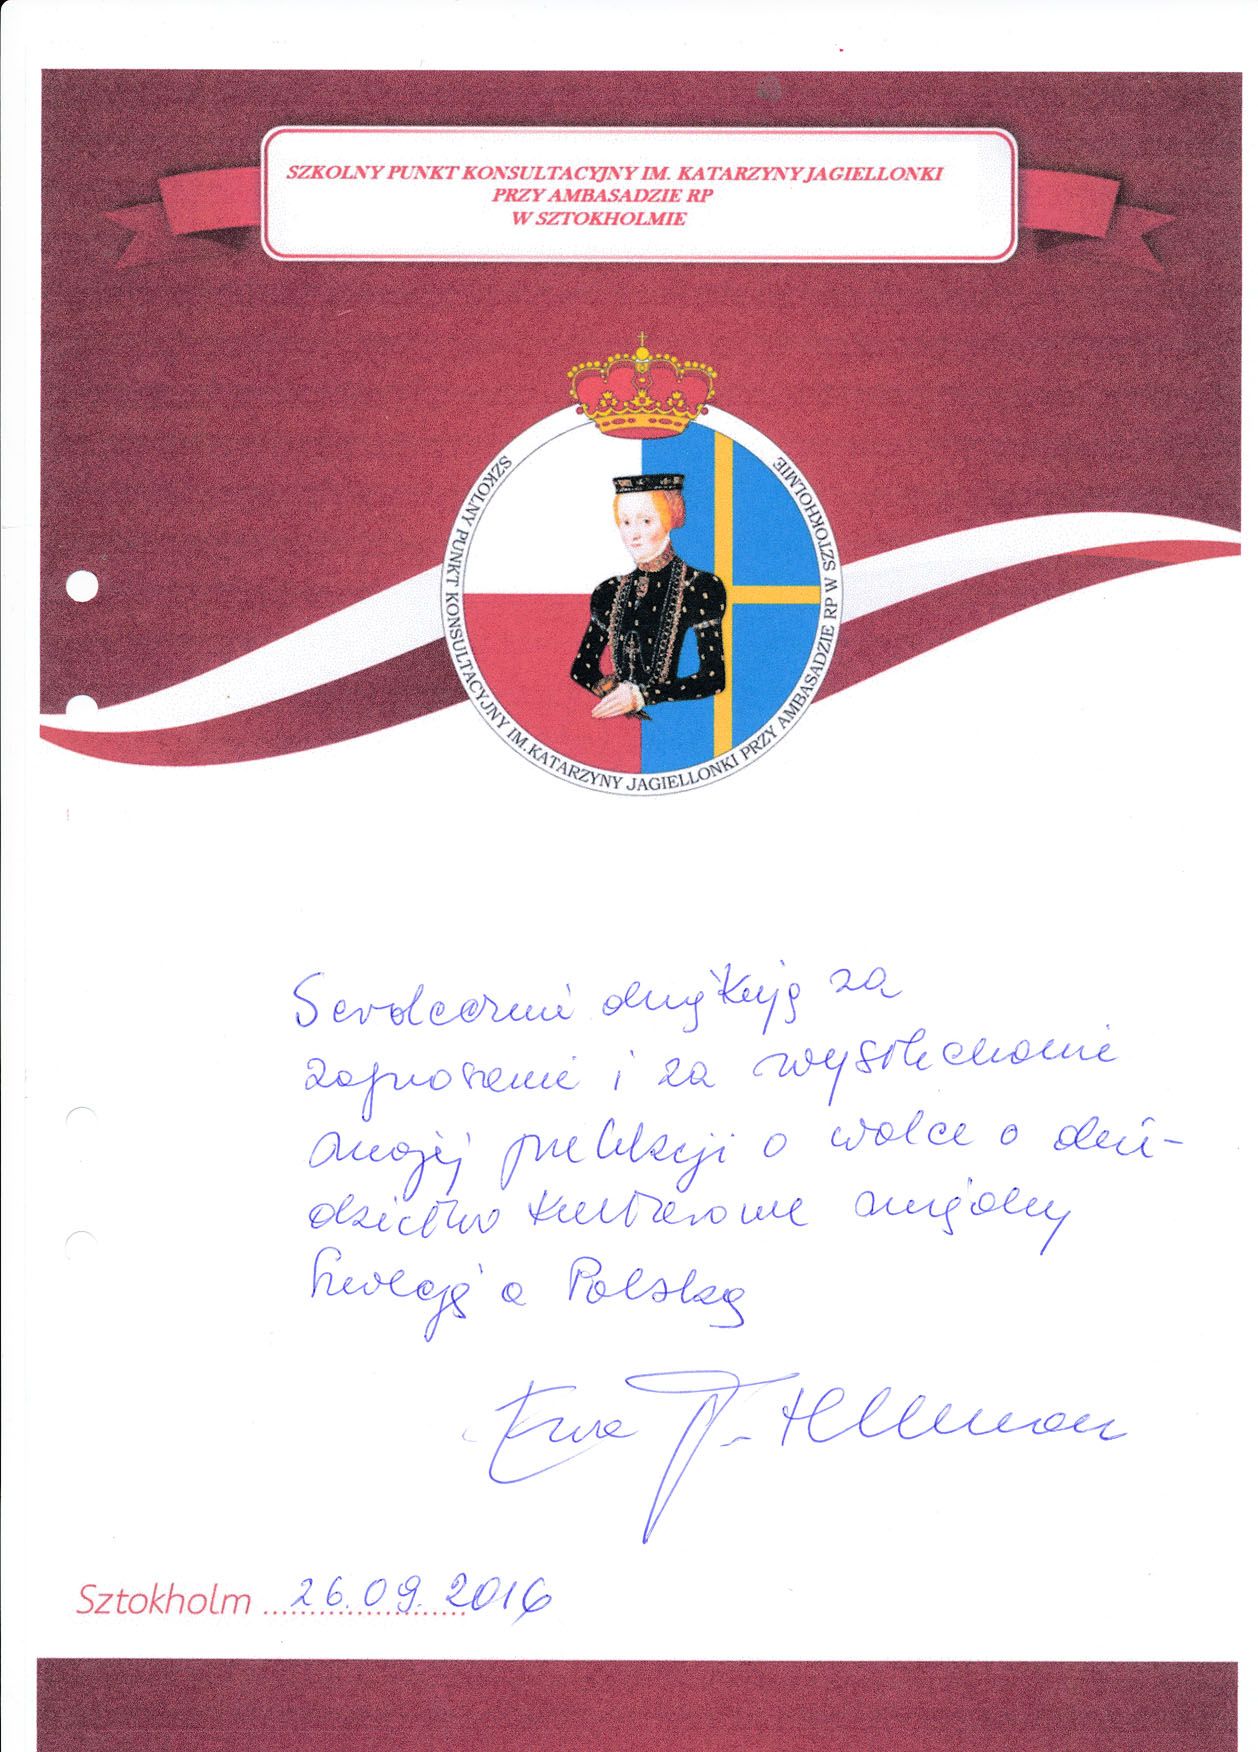 SZKOLNY PUNKT KONSULTACYJNY IM. KATARZYNY JAGIELLONKI
PRZY AMBASADZIE RP
W SZTOKHOLMIE
SZKOLNY PUNKT KONSULTACYJNY IM.KATARZYNY JAGIELLONKI PRZY AMBASADZIE RP W SZTOKHOLMIE
Serdecznie dziękuję za
zaproszenie i za wysłuchanie
mojej prelekcji o walce o dzie-
dzictwo kulturowe między
Szwecją a Polską
Ewa
Sztokholm 26.09.2016